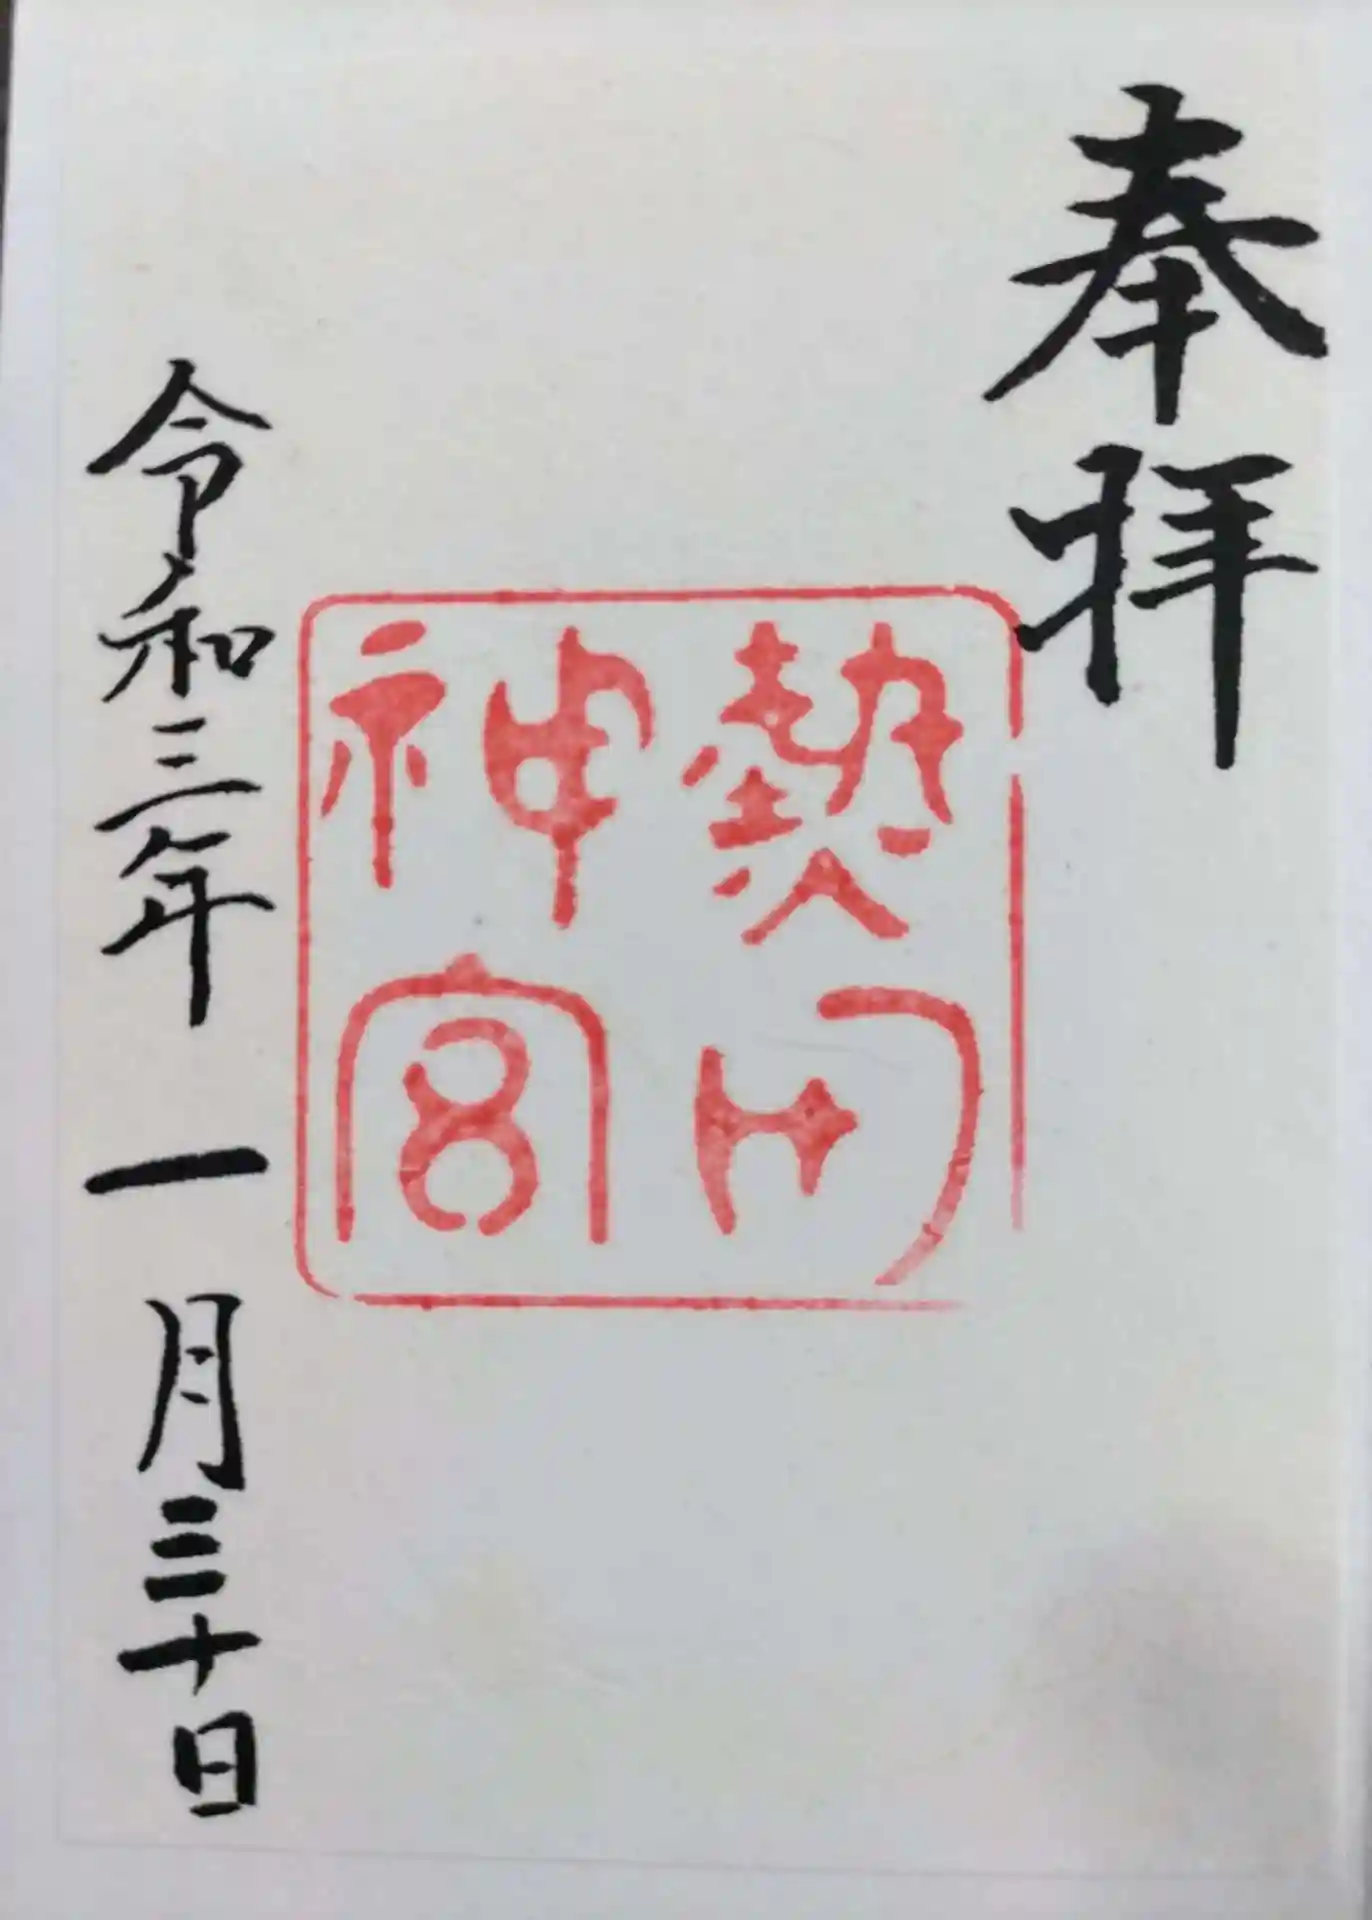 奉拝
熱田
神宮
令和三年一月三十日